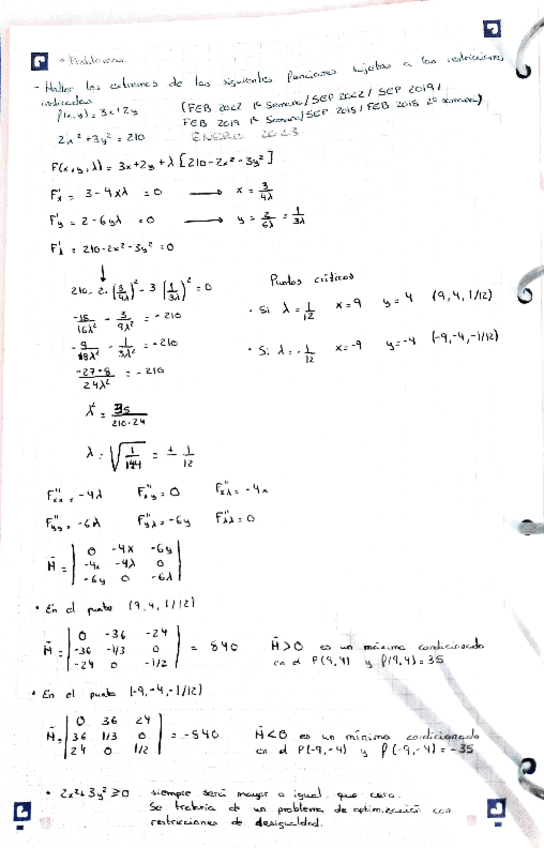 • Problemas
- Hallar los extremos de las siguientes funciones sujetas a las restricciones
indicadas
f(x,y) = 3x+2y (FEB 2022 1ª Semana / SEP 2022 / SEP 2019 /
2x² + 3y² = 210 FEB 2019 1ª Semana / SEP 2015 / FEB 2015 2ª semana)
ENERO 2023
F(x,y,λ) = 3x+2y + λ [210-2x²-3y²]
F'x = 3-4xλ = 0 → x = 3/4λ
F'y = 2-6yλ = 0 → y = 2/6λ = 1/3λ
F'λ = 210-2x²-3y² = 0
↓
210-2·(3/4λ)² - 3(1/3λ)² = 0
-18/16λ² - 3/9λ² = -210
-9/8λ² - 1/3λ² = -210
-27-8/24λ² = -210
λ² = 35/210·24
λ = √1/144 = ± 1/12
Puntos críticos
• Si λ = 1/12 x=9 y=4 (9,4,1/12)
• Si λ = -1/12 x=-9 y=-4 (-9,-4,-1/12)
F''xx = -4λ F''xy = 0 F''xλ = -4x
F''yy = -6λ F''yλ = -6y F''λλ = 0
H̄ = | 0 -4x -6y |
| -4x -4λ 0 |
| -6y 0 -6λ |
• En el punto (9,4,1/12)
H̄ = | 0 -36 -24 |
| -36 -1/3 0 | = 840 H̄>0 es un máximo condicionado
| -24 0 -1/2 | en el P(9,4) y f(9,4) = 35
• En el punto (-9,-4,-1/12)
H̄ = | 0 36 24 |
| 36 1/3 0 | = -840 H̄<0 es un mínimo condicionado
| 24 0 1/2 | en el P(-9,-4) y f(-9,-4) = -35
• 2x²+3y² ≥ 0 siempre será mayor o igual que cero.
Se trataría de un problema de optimización con
restricciones de desigualdad.